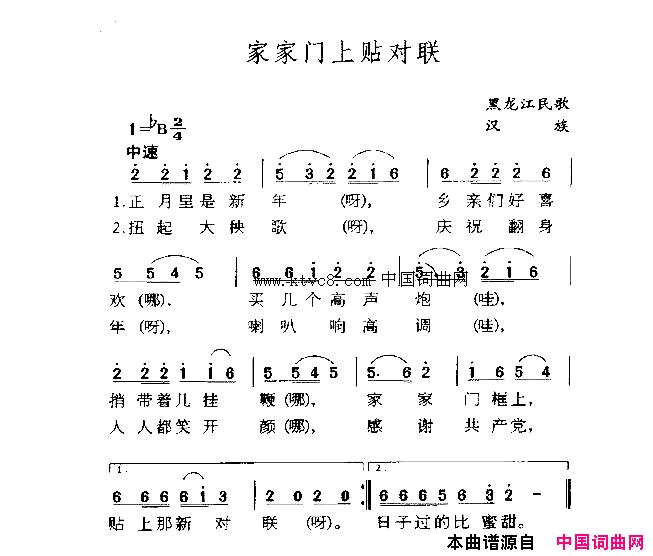 家家门上贴对联
黑龙江民歌
1=♭B 2/4
汉 族
中速
2 2 1 2 2 | 5 3 2 2 | 6 2 2 2 |
1.正 月里是 新 年 (呀), 乡 亲们好 喜
2.扭起 大 秧 歌 (呀), 庆 祝 翻 身
5 5 4 5 | 6 6 1 2 2 | 5 3 | 2 1 6 |
www.ktvc8.com 中国词曲网
欢 (哪), 买 几 个 高 声 炮 (哇),
年 (呀), 喇 叭 响 高 调 (哇),
2 2 2 1 1 6 | 5 5 4 5 | 5. 6 2 | 1 6 5 4 |
捎 带着儿 挂 鞭 (哪), 家 家 门 框上,
人 人都笑 开 颜 (哪), 感 谢 共产党,
1. 2.
6 6 6 6 1 5 | 2 0 2 0 :‖ 6 6 6 5 6 6 | 2 - ‖
贴 上那新 对 联 (呀)。 日子过的比 蜜甜。
本曲谱源自 中国词曲网